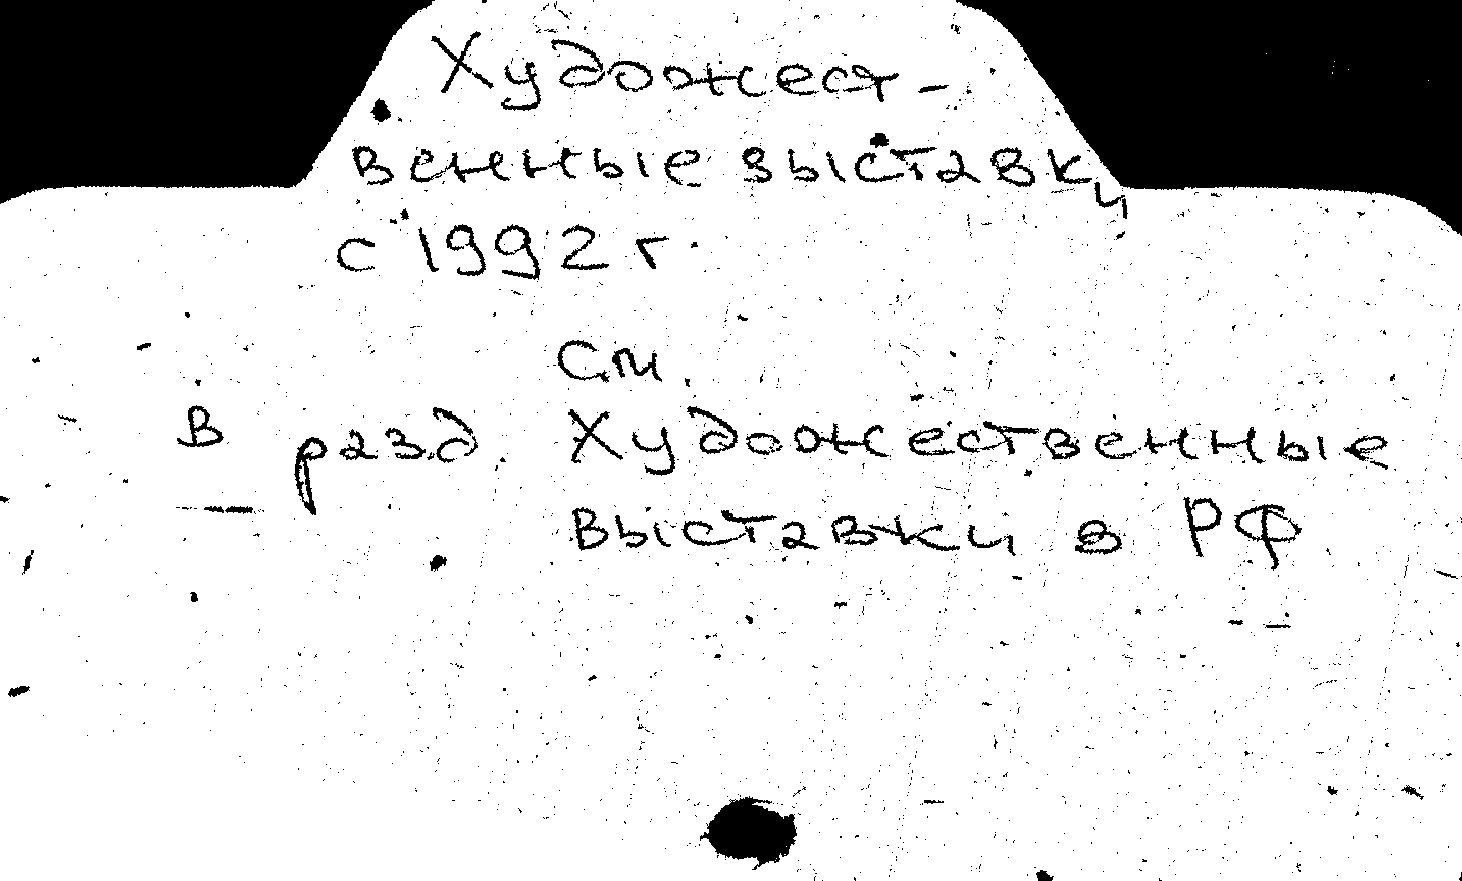 Художест-
венные выставки
с 1992 г.
См.
В разд. Художественные
выставки в РФ